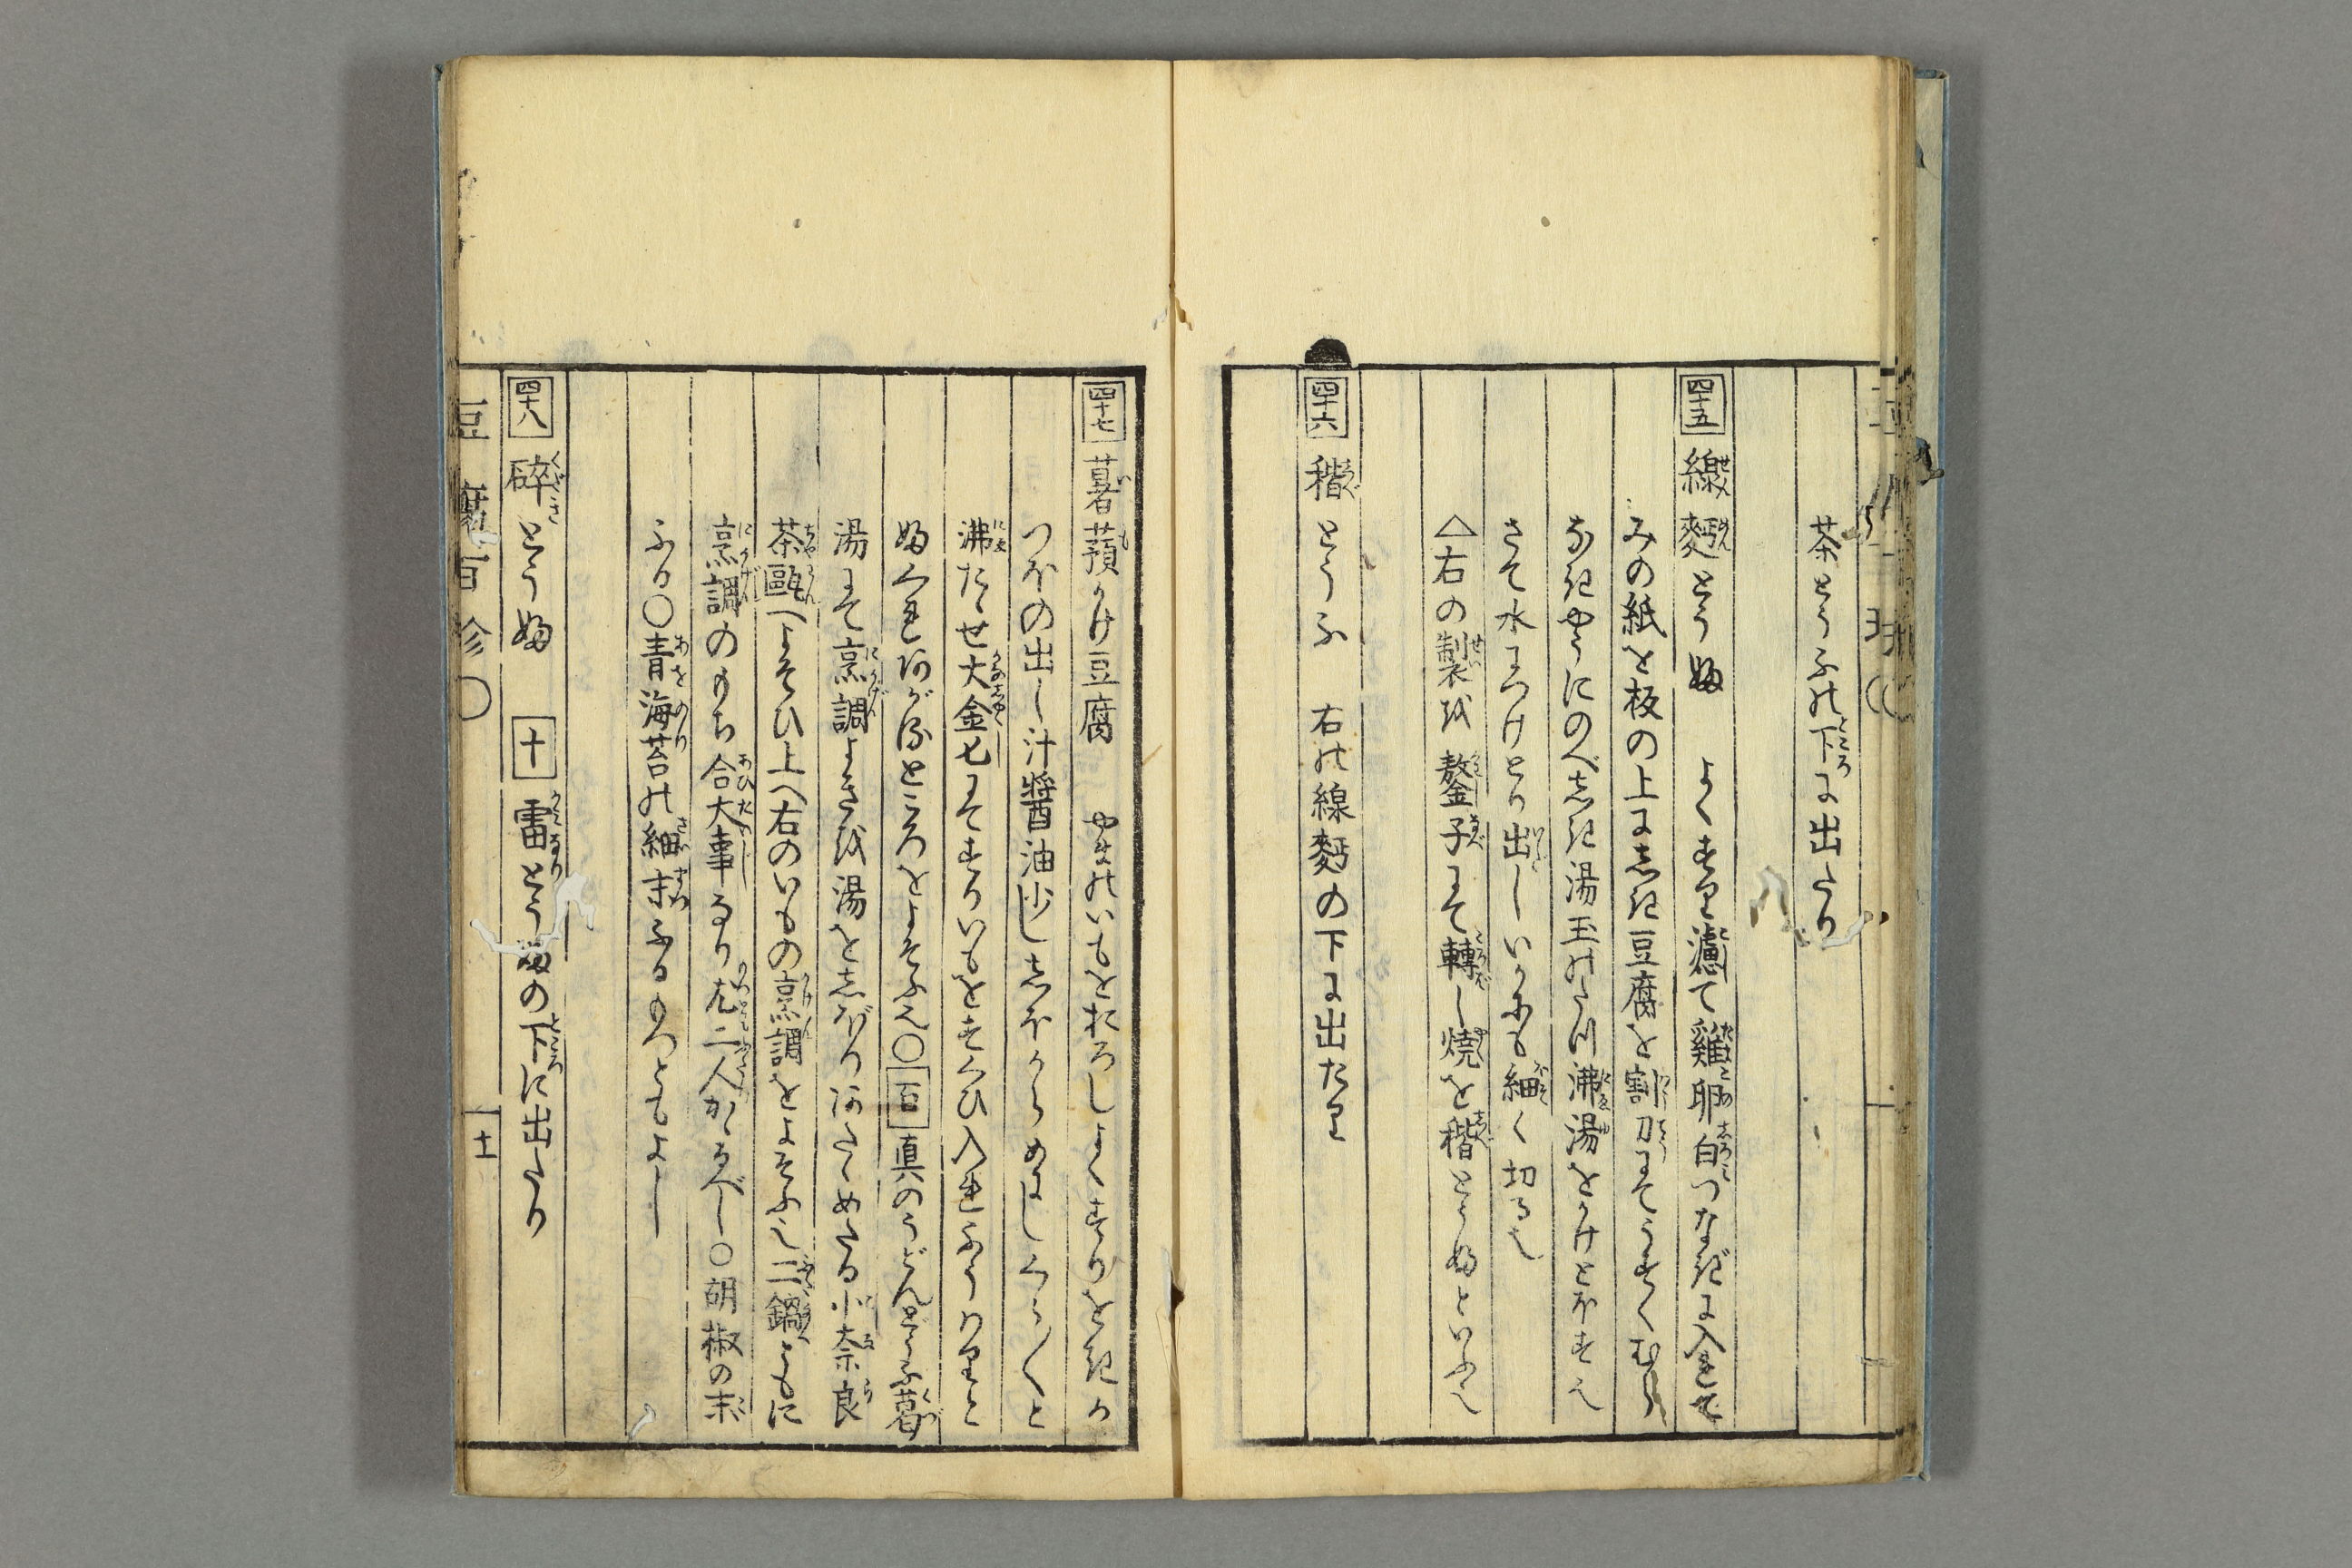 茶とうふの下に出たり
四十五 線麪とう婦 よくすり濾て雞卵白つなぎに入れて
みの紙を板の上にしき豆腐を割刀にてうすくむら
なきやうにのべしき湯玉のたつ沸湯をかけとほすべし
さて水につけとり出しいかにも細く切る也
△右の製を鏊子にて轉し焼を稭とう婦といふ也
四十六 稭とうふ 右の線麪の下に出たり
四十七 薯蕷かけ豆腐 やまのいもをおろしよくすりをき
つねの出し汁醤油少ししほからめにしくら〳〵と
沸たゝせ大金匕にてすりいもをすくひ入れふうはりと
婦くれあがるところをよそふ也○百真のうどんどうふ葛
湯にて烹調よきを湯をしぼりあたゝめたる小奈良
茶甌へよそひ上へ右のいもの烹調をよそふ也二鍋ともに
烹調のうち合大事なり尤二人かゝるべし○胡椒の末
ふる○青海苔の細末ふるもつともよし
四十八 砕とう婦 十 雷とう婦の下に出たり
豆腐百珍○ 十一